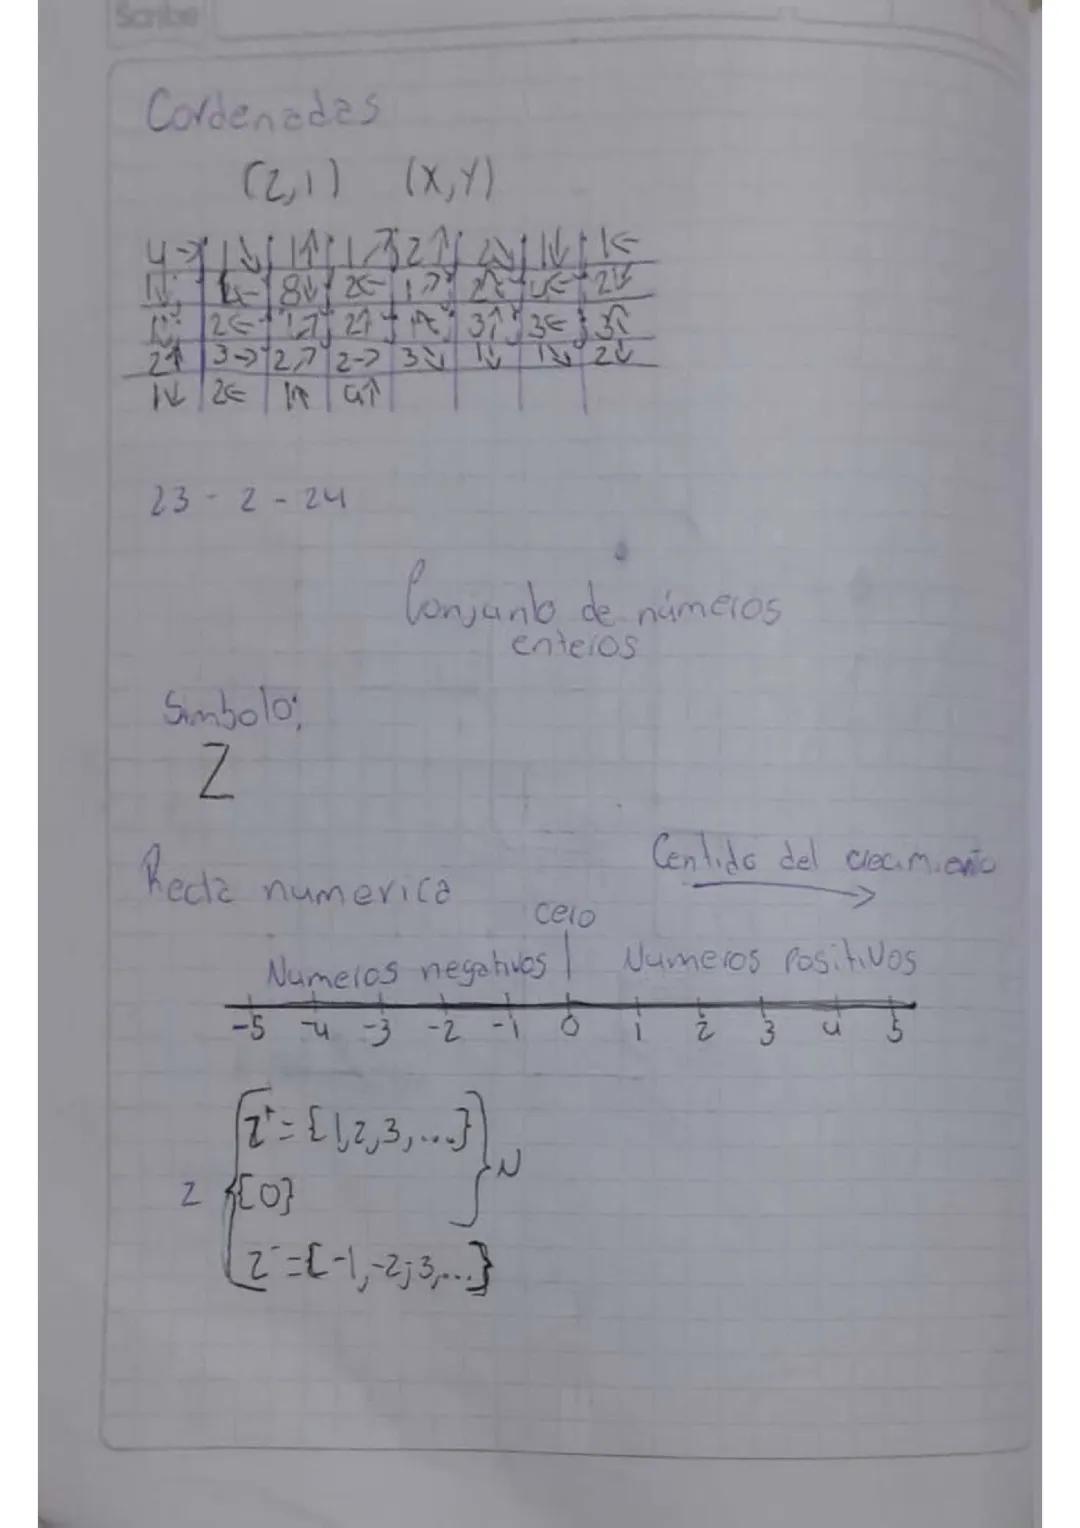 Scribe
Cordenadas
(2,1) (X,Y)
4→ 1↘ 1↑ 1↗ 2↑ 2↘ 1↓ 1←
1↓ 4← 8↓ 2← 1↗ 2↖ 4← 2↓
2← 1↗ 2↑ 1↖ 3↑ 3← 3↑
2↑ 3→ 2↗ 2→ 3↘ 1↓ 1↘ 2↓
1↓ 2← 1↑ 4↑
23 - 2 - 24
Conjunto de números
enteros
Simbolo:
Z
Centido del crecimiento
Recta numerica
cero
Numeros negativos Numeros Positivos
-5 -4 -3 -2 -1 0 1 2 3 4 5
Z⁺ = {1,2,3,...}
Z {0} N
Z⁻ = {-1,-2,-3,...}